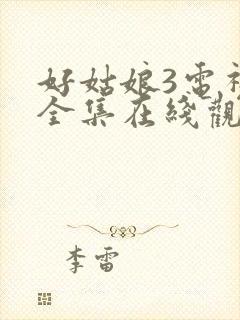 好姑娘3電
全集在綫觀
李雷